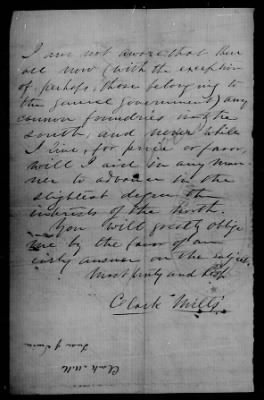 I am not aware that there
are now (with the exception
of perhaps, those belonging to
the general government) any
cannon foundries in the
south, and never while
I live, for price or favor,
will I aid in any man-
ner to advance in the
slightest degree the
interests of the North.
You will greatly oblige
me by the favor of an
early answer on the subject.
Most truly and
Clark Mills
Clark Mills